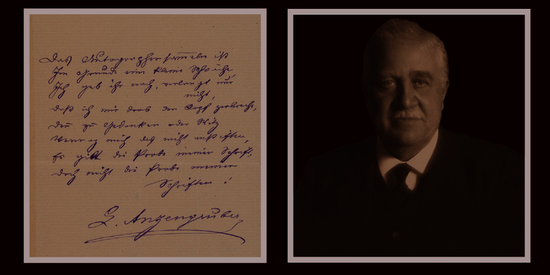 Das Autographensammeln ist
Im Grund eine kleine Schwäche
Ich geb ihr nach, verlangt nur
nicht,
daß ich mir drob den Kopf zerbreche,
Denn zu Gedanken oder Witz
mich das nicht
Es gilt die Probe meiner Schrift,
doch nicht die Probe meiner
Schriften!
L. Anzengruber